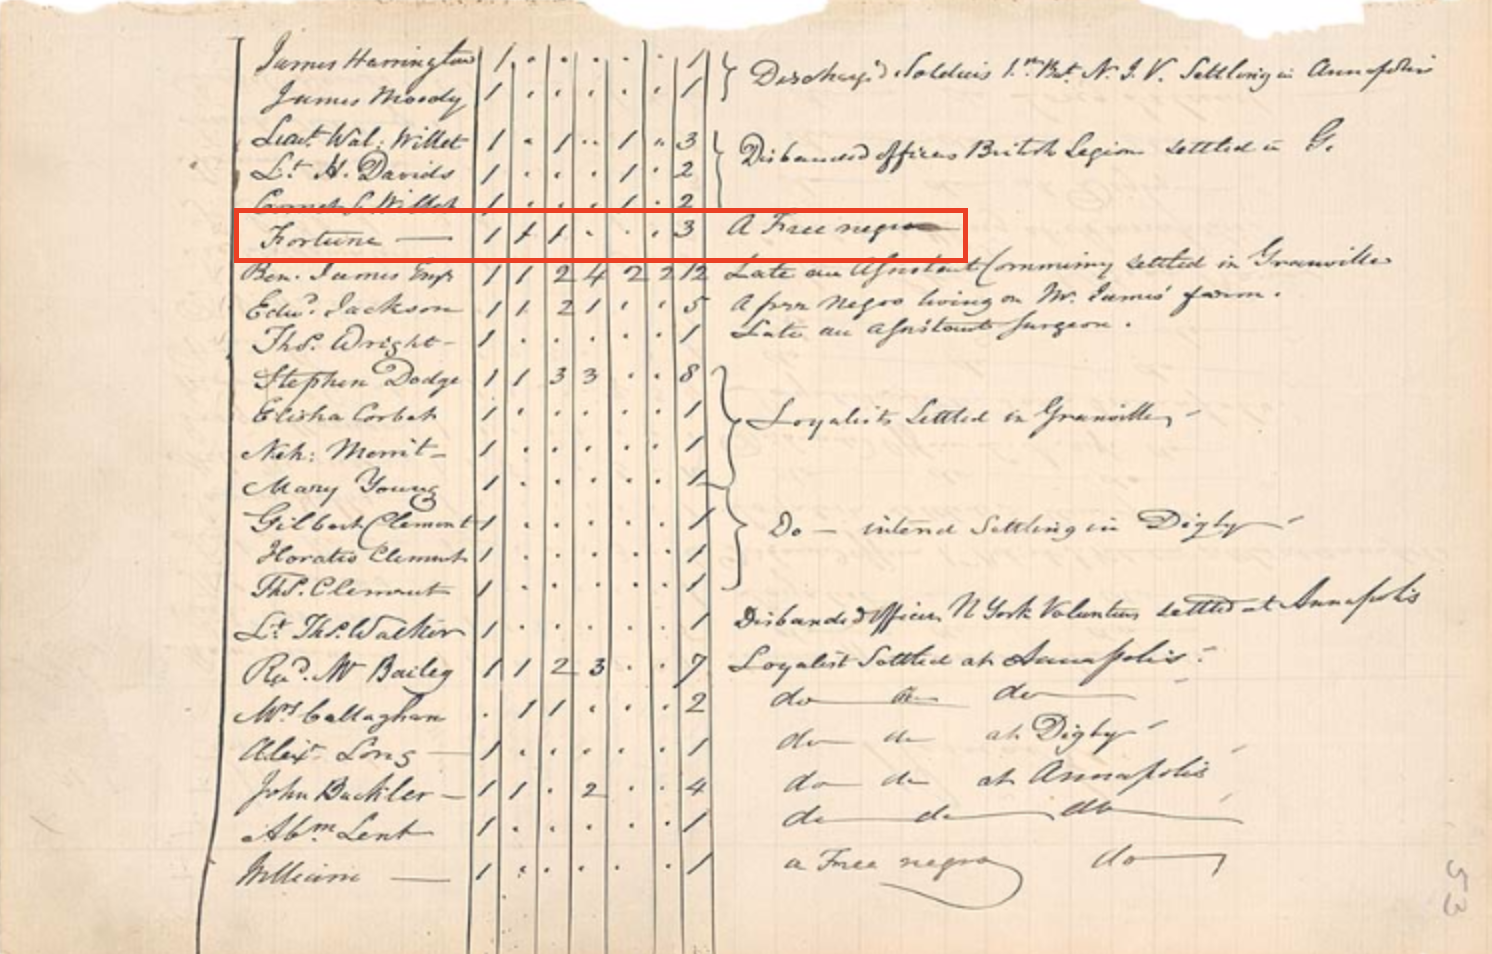 James Harrington 1 . . . . . 1 Discharg'd Soldiers 1.st Bat. N. J. V. Settling in Annapolis
James Moody 1 . . . . . 1
Lieut. Wal: Willet 1 . 1 . 1 . 3 Disbanded Officers British Legion settled in G.
Lt. H. Davids 1 . . . 1 . 2
Cornet S. Willet 1 . . . 1 . 2
Fortune — 1 1 1 . . . 3 A Free negro
Ben. James Esqr 1 1 2 4 2 2 12 Late an Assistant Commissary settled in Granville
Edwd. Jackson 1 1 2 1 . . 5 A free Negro living on Mr. James' farm.
Thos. Wright — 1 . . . . . 1 Late an Assistant Surgeon.
Stephen Dodge 1 1 3 3 . . 8
Elisha Corbet 1 . . . . . 1 Loyalists Settled in Granville
Neh: Merrit — 1 . . . . . 1
Mary Young 1 . . . . . 1
Gilbert Clement 1 . . . . . 1 Do — intend Settling in Digby
Horatio Clement 1 . . . . . 1
Thos. Clement 1 . . . . . 1
Lt. Thos. Walker 1 . . . . . 1 Disbanded Officer N York Volunteers settled at Annapolis
Revd. Mr Bailey 1 1 2 3 . . 7 Loyalist Settled at Annapolis
Mrs Callaghan . 1 1 . . . 2 do do do
Alexr. Long — 1 . . . . . 1 do do at Digby
John Buckler — 1 1 . 2 . . 4 do do at Annapolis
Abm Lent 1 . . . . . 1 do do do
William — 1 . . . . . 1 a Free negro do
53